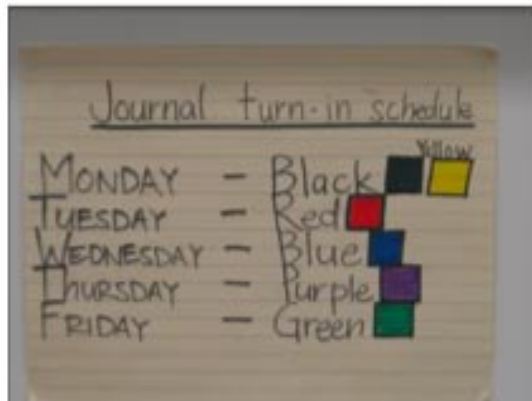 Journal turn-in schedule
Yellow
MONDAY - Black
TUESDAY - Red
WEDNESDAY - Blue
THURSDAY - Purple
FRIDAY - Green